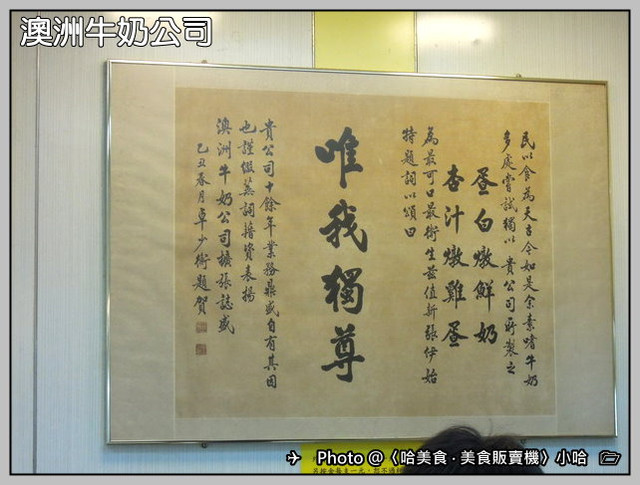 澳洲牛奶公司
民以食為天古今如是余素嗜牛奶
多處嘗試獨以 貴公司所製之
蛋白燉鮮奶
杏汁燉雞蛋
為最可口最衛生茲值新張伊始
特題詞以頌曰
唯我獨尊
貴公司十餘年業務鼎盛自有其因
也謹綴蕪詞藉資表揚
澳洲牛奶公司擴張誌盛
乙丑春月卓少衛題賀
✈ Photo @〈哈美食‧美食販賣機〉小哈